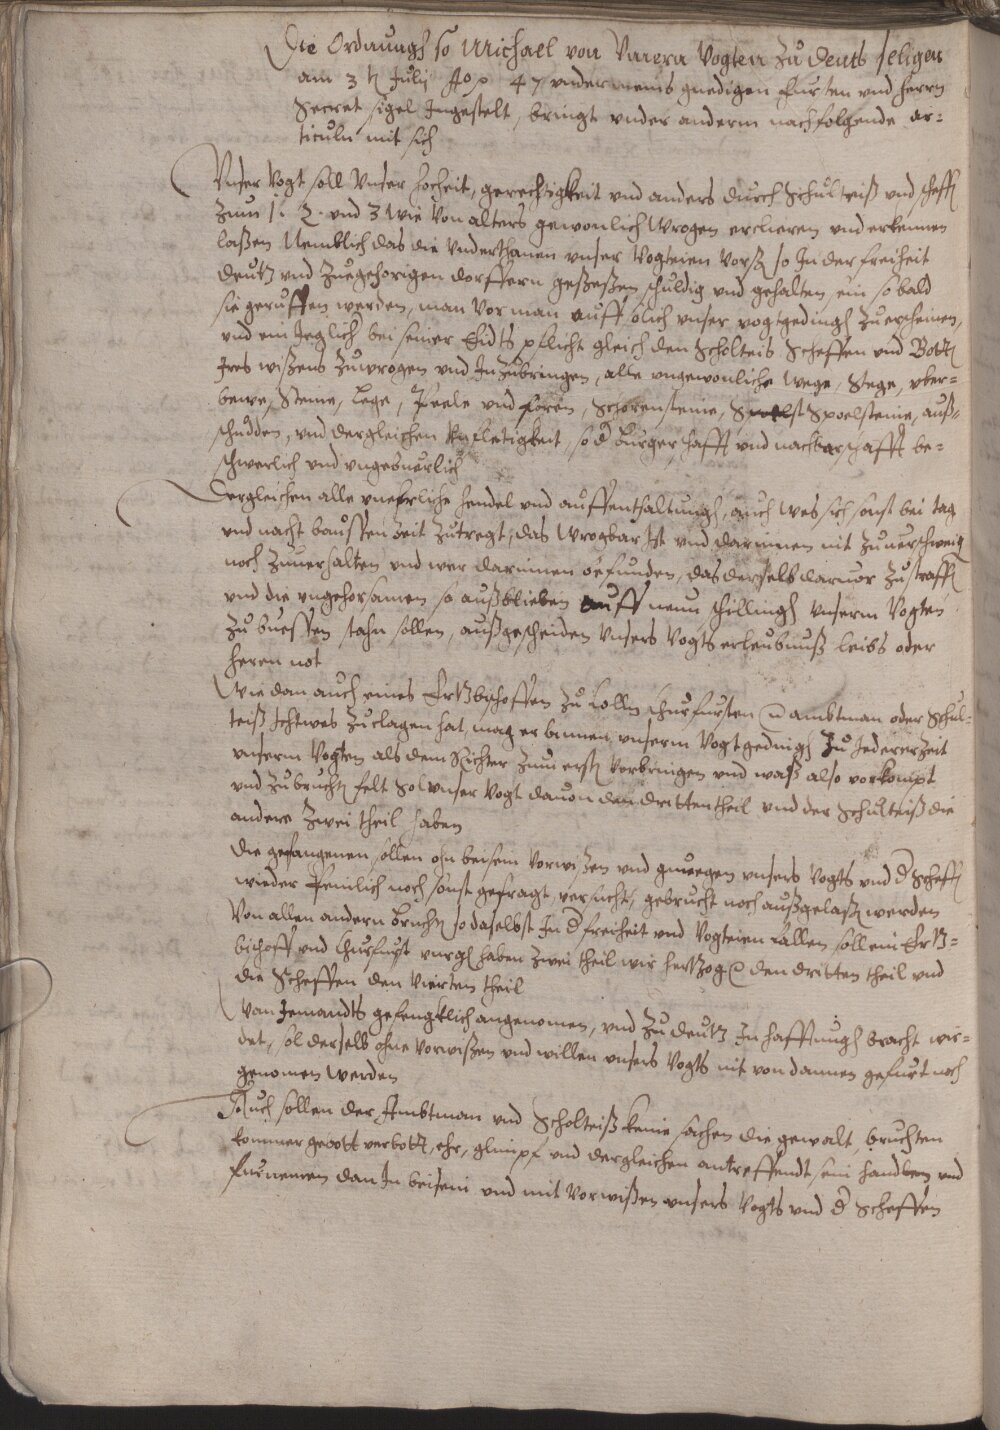 Die Ordnungh so Michael von Vnera Vogten Zu Deuts seligen
am 3 t Julij Ao p 47 vnder meins gnedigen Fursten vnd Herrn
Secret sigel Ingestelt, bringt vnder anderm nachfolgende ar=
ticuln mit sich
Vnser Vogt soll Vnser hocheit, gerechtigkeit vnd anders durch Schulteiß vnd scheff
Zum 1. 2. vnd 3 wie Von alters gewonlich Wrogen ercleren vnd erkennen
laßen Nemblich das die Vnderthanen vnser Vogteien Vorß so In der freiheit
Deutz vnd Zugehorigen dorffern geseßen schuldig vnd gehalten sein so bald
sie geruffen werden, man Vor man auff solich vnser vogtgedingh Zu erscheinen,
vnd ein Jeglich bei seiner Eidts pflicht gleich den Scholteis Scheffen vnd Bott
Ires wißens Zuwrogen vnd Inzubringen, alle vngewonliche Wege, Stege, vber=
bewe, Steine, Lege, Peele vnd Foren, Schorensteine, Spoelsteine, auß=
schudden, vnd dergleichen Vnfletigkeit, so d burgerschafft vnd nachbarschafft be=
schwerlich vnd vngeburlich
Dergleichen alle vneherliche hendel vnd auffenthaltungh, auch Wes sich sonst bei tag
vnd nacht baussen Zeit Zutregt, das Wrogbar Ist vnd darinnen nit Zuuerschweig
noch Zuuerhalten vnd wer darinnen befunden, das derselb daruor Zustraff
vnd die vngehorsamen so außblieben auff neun schillingh Vnserm Vogten
Zu buessen stahn sollen, außgescheiden Vnsers Vogts erleubnuß leibs oder
heren not
Wie dan auch eines Ertzbischoffen Zu Colln Churfursten ambtman oder Schul=
teiß Ichtwes Zuclagen hat, mag er binnen vnserm Vogtgedingh Zu Jederer Zeit
vnserm Vogten als dem Richter Zum erst Vorbringen vnd waß also vorkompt
vnd Zu brucht felt Sol vnser Vogt dauon den dritten theil vnd der Schulteiß die
andere Zwei theil haben
Die gefangenen sollen ohn beisein Vorwißen vnd zuwegen vnsers Vogts vnd d Scheff
wieder Peinlich noch sonst gefragt, versucht, gebrucht noch außgelaß werden
Von allen andern brucht so daselbst In d freiheit vnd Vogteien fallen soll ein Ertz=
bischoff vnd Churfurst vurgh haben Zwei theil wir hertzog den dritten theil vnd
die Scheffen den Vierten theil
Wan Jemandts gefengklich angenomen, vnd Zu deutz In hafftungh bracht wir=
det, sol derselb ohne Vorwißen vnd willen vnsers Vogts nit von dannen gefurt noch
genomen werden
Auch sollen der Ambtman vnd Scholteiß keine sachen die gewalt, bruchten
kommer gebott verbott, ehr, glimpf vnd dergleichen antreffendt, sein handben vnd
furnemen dan In beisein vnd mit Vorwißen vnsers Vogts vnd d Scheffen